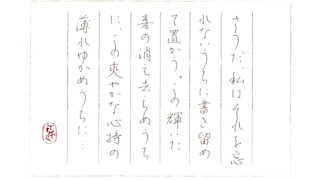 さうだ、私はそれを忘
れないうちに書き留め
て置かう。この輝いた
喜の消え去らぬうち
に、この爽やかな心持の
薄れゆかぬうちに…